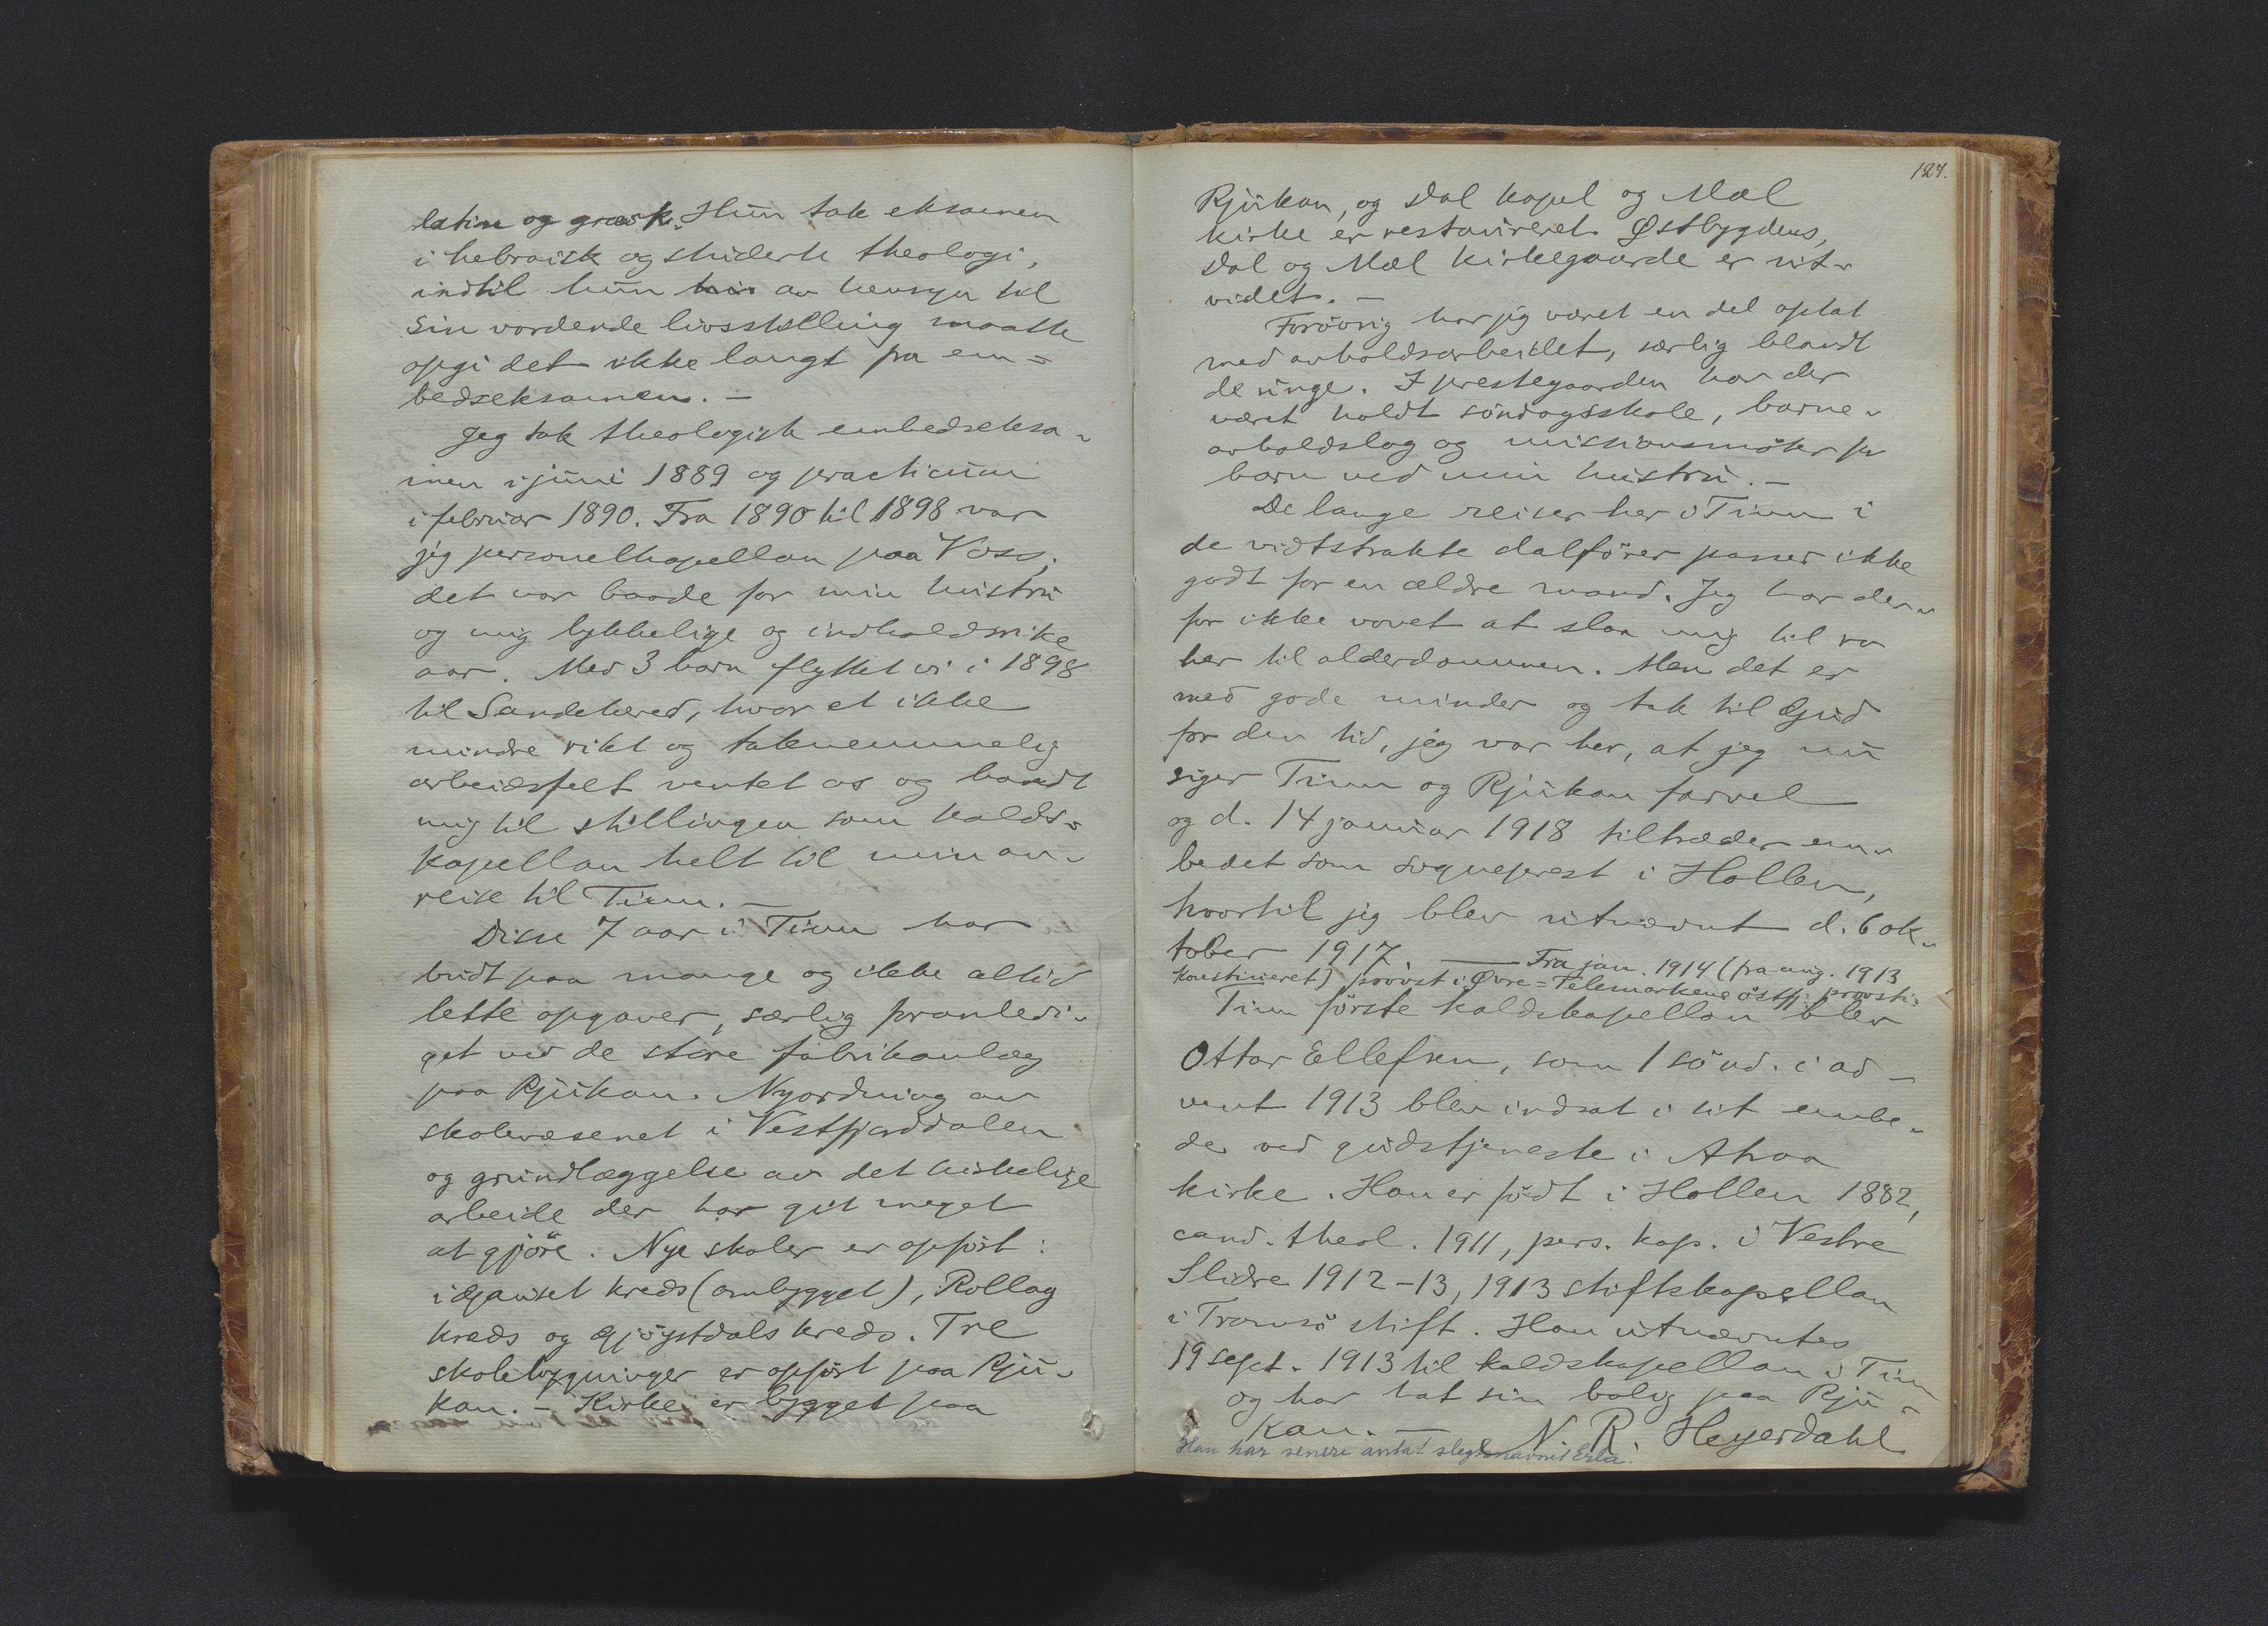 latin og græsk. Hun tok eksamen
i hebraisk og studerte theologi,
indtil hun av hensyn til
sin vordende livsstilling maatte
opgi det ikke langt fra em=
bedseksamen. –
Jeg tok theologisk embedseksa-
men i juni 1889 og practicum
i februar 1890. Fra 1890 til 1898 var
jeg personelkapellan paa Voss;
det var baade for min hustru
og mig lykkelige og indholdsrike
aar. Med 3 barn flyttet vi i 1898
til Sandeherred, hvor et ikke
mindre rikt og taknemmelig
arbeidsfelt ventet os og bandt
mig til stillingen som kalds=
kapellan helt til min an-
reise til Tinn. –
Disse 7 aar i Tinn har
budt paa mange og ikke altid
lette opgaver, særlig foranledi-
get ved de store fabrikanlæg
paa Rjukan. Nyordning av
skolevæsenet i Vestfjorddalen
og grundlæggelse av det kirkelige
arbeide der har git meget
at gjöre. Nye skoler er opfört:
i Gauset kreds (ombygget), Rollag
kreds og Gjöystdals kreds. Tre
skolebygninger er opfört paa Rju-
kan. – Kirke er bygget paa
127.
Rjukan, og Dal kapel og Mæl
kirke er restaureret. Østbygdens,
Dal og Mæl kirkegaarde er ut-
videt. –
Forövrig har jeg været en del optat
med avholdsarbeidet, særlig blandt
de unge. I prestegaarden har der
været holdt söndagsskole, barne-
avholdslag og missionsmöter for
barn ved min hustru. –
De lange reiser her i Tinn i
de vidtstrakte dalförer passer ikke
godt for en ældre mand. Jeg har der-
for ikke vovet at slaa mig til ro
her til alderdommen. Men det er
med gode minder og tak til Gud
for den tid, jeg var her, at jeg nu
siger Tinn og Rjukan farvel
og d. 14 januar 1918 tiltræder em-
bedet som sogneprest i Hollen,
hvortil jeg blev utnævnt d. 6 ok-
tober 1917. — Fra jan. 1914 (fra aug. 1913
konstitueret) provst i Øvre=Telemarkens östfj. provsti.
Tinn förste kaldskapellan blev
Ottar Ellefsen, som 1 sönd. i ad-
vent 1913 blev indsat i sit embe-
de ved gudstjeneste i Atraa
kirke. Han er födt i Hollen 1882,
cand. theol. 1911, pers. kap. i Vestre
Slidre 1912-13, 1913 stiftskapellan
i Tromsö stift. Han utnævntes
19 sept. 1913 til kaldskapellan i Tinn
og har hat sin bolig paa Rju-
kan. — N. R. Heyerdahl.
Han har senere antat slegtsnavnet Erla.